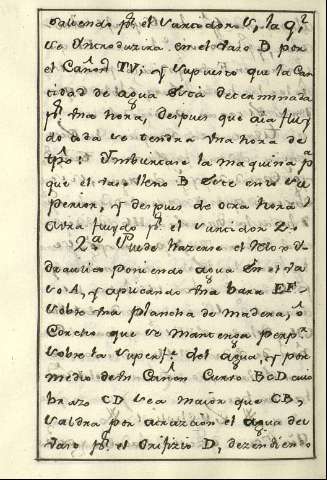 saliendo pr. el Surtidor V, la qe.
se Introduzira en el vaso D por
el Cañon TV; y supuesto que la Can
tidad de agua està determinada
pa. vna hora, despues que aia fluy
do toda se tendra vna hora de
tpo: Imbuertase la maquina pa
que el vaso lleno B este en lo su
perior, y despues de otra hora
avra fluydo pr. el surtidor Z.
2.ª Puede hazerse el Relox Y
draulico poniendo agua en el va
so A, y aplicando vna bara EF
sobre vna plancha de madera, ò
Corcho que se mantenga perpr.
sobre la superfe. del agua, y por
medio de vn Cañon Curvo BCD cuio
brazo CD sea maior que CB,
saldra por atraccion el agua del
vaso pr. el Orifizio D, dezendiendo